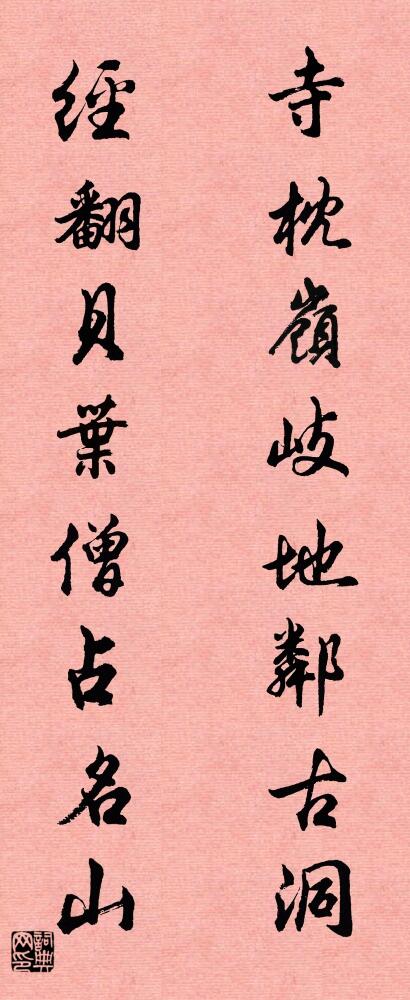 寺枕嶺歧地鄰古洞
經翻貝葉僧占名山
詞典網印